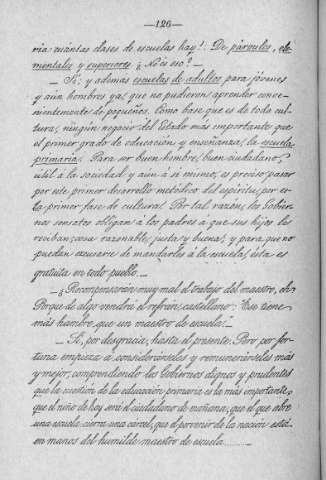 —126—
ria cuántas clases de escuelas hay? De párvulos, ele-
mentales y superiores ¿No es eso?—
— Sí; y además escuelas de adultos para jóvenes
y aún hombres ya, que no pudieron aprender conve-
nientemente de pequeños. Como base que es de toda cul-
tura, ningún negocio del Estado más importante que
el primer grado de educación y enseñanza; la escuela
primaria. Para ser buen hombre, buen ciudadano,
útil á la sociedad y aún á sí mismo, es preciso pasar
por este primer desarrollo metódico del espíritu, por es-
ta primer fase de cultura. Por tal razón, los Gobier-
nos sensatos obligan á los padres á que sus hijos la
reciban; cosa razonable, justa y buena; y para que no
puedan excusarse de mandarlos á la escuela, ésta es
gratuita en todo pueblo.—
—¿Recompensarán muy mal el trabajo del maestro, eh?
Porque de algo vendrá el refrán castellano: "Ese tiene
más hambre, que un maestro de escuela."—
— Sí, por desgracia, hasta el presente. Pero por for-
tuna empieza á considerárseles y remunerárseles más
y mejor, comprendiendo los Gobiernos dignos y prudentes
que la cuestión de la educación primaria es la más importante,
que el niño de hoy será el ciudadano de mañana, que el que abre
una escuela cierra una cárcel, que el porvenir de la nación está
en manos del humilde maestro de escuela.........—